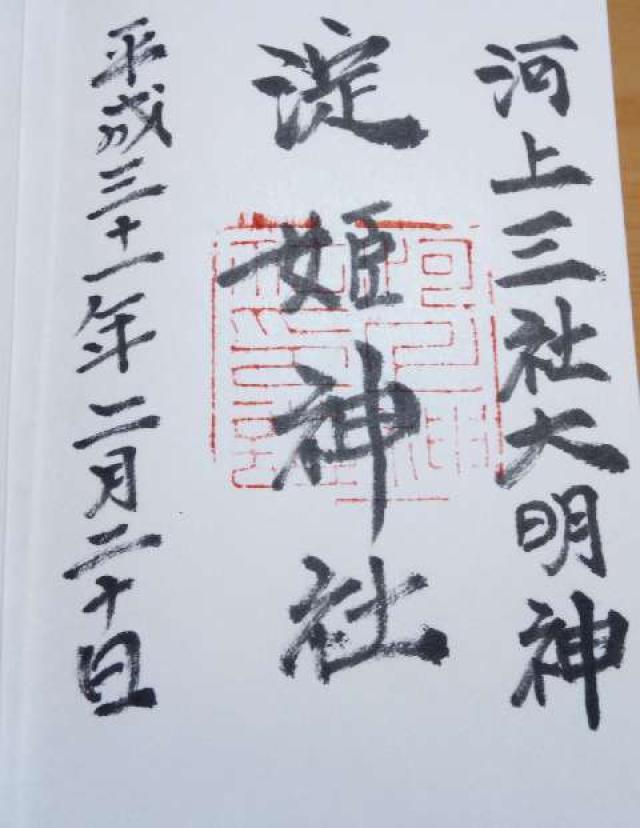 河上三社大明神
淀姫神社
平成三十一年二月二十日